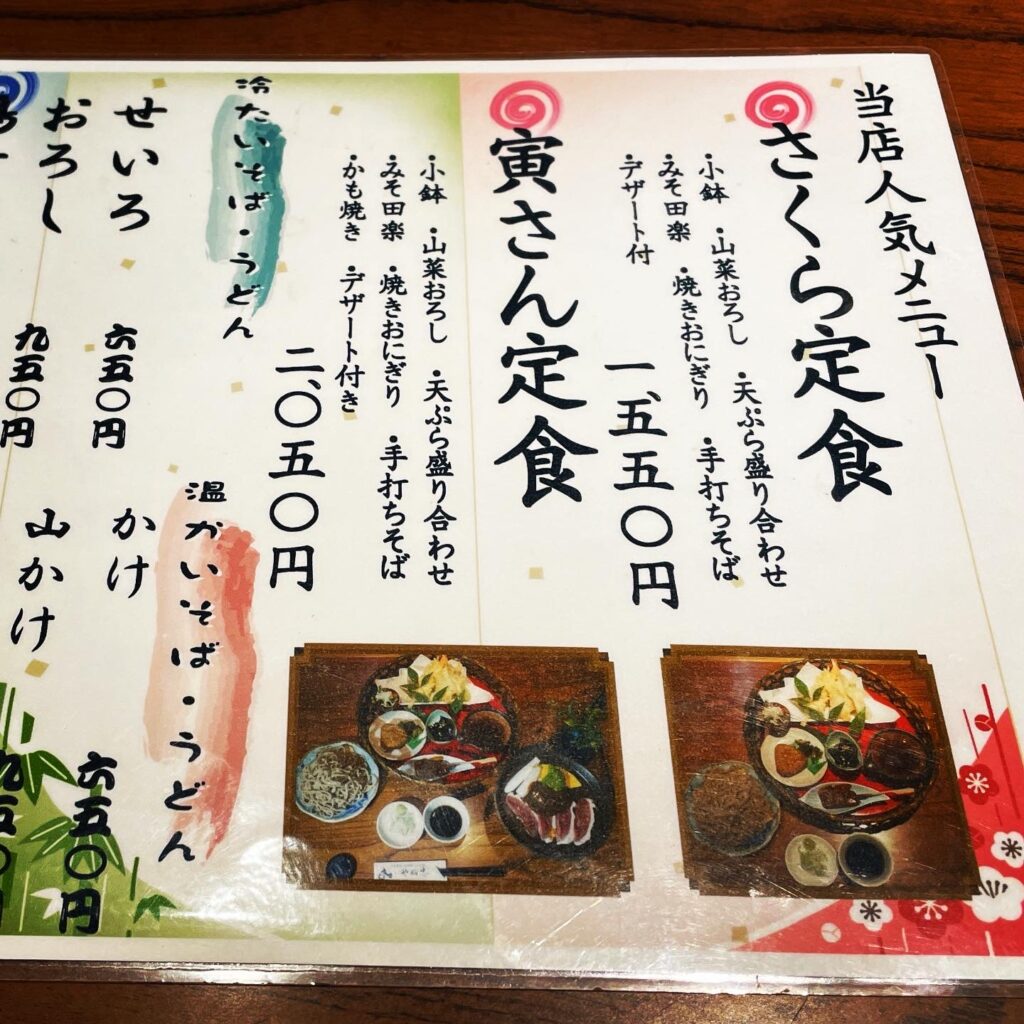 当店人気メニュー
さくら定食
・小鉢 ・山菜おろし ・天ぷら盛り合わせ
・みそ田楽 ・焼きおにぎり ・手打ちそば
・デザート付
一、五五〇円
寅さん定食
・小鉢 ・山菜おろし ・天ぷら盛り合わせ
・みそ田楽 ・焼きおにぎり ・手打ちそば
・かも焼き ・デザート付き
二、〇五〇円
冷たいそば・うどん
せいろ 六五〇円
おろし 九五〇円
温かいそば・うどん
かけ 六五〇円
山かけ 九五〇円